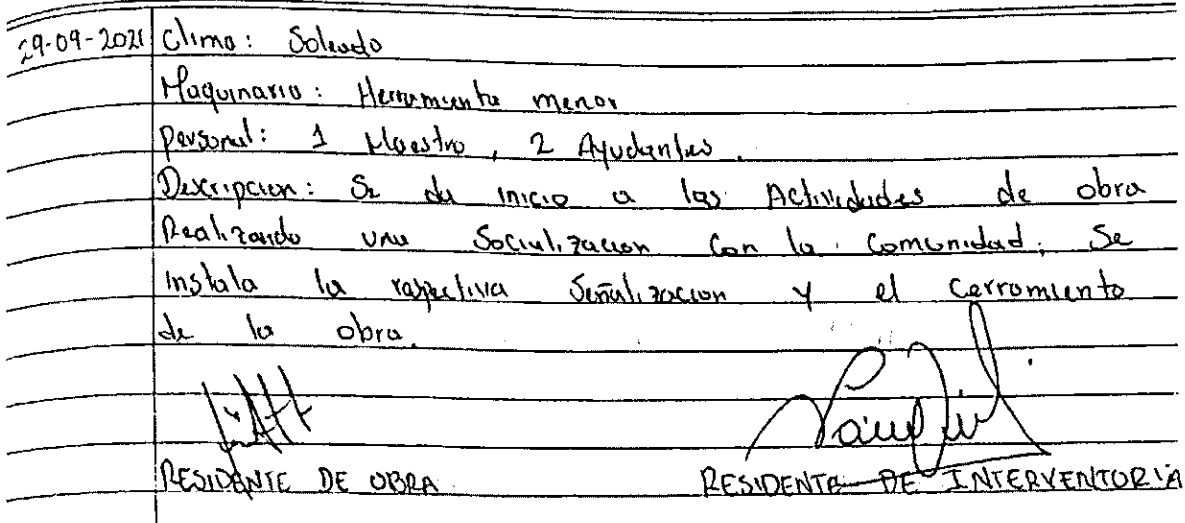 29-09-2021 Clima: Soleado
Maquinaria: Herramienta menor
Personal: 1 Maestro, 2 Ayudantes.
Descripcion: Se da inicio a las Actividades de obra
Realizando una Socialización con la comunidad; Se
instala la respectiva Señalización y el cerramiento
de la obra.
RESIDENTE DE OBRA RESIDENTE DE INTERVENTORIA